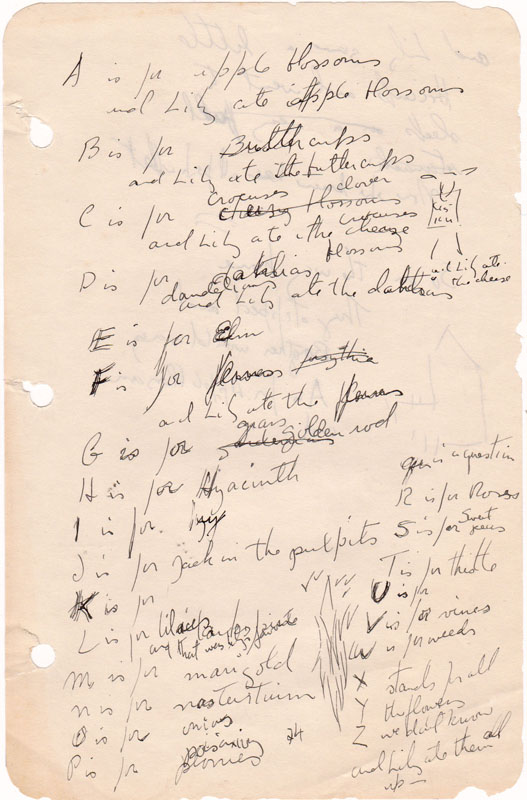 A is for apple blossoms
and Lily ate apple blossoms
B is for Buttercups
and Lily ate the buttercups
crocuses clover
C is for cherry blossoms
crocuses
and Lily ate the cheese
blossoms
D is for dahlias
dandelions
and Lily ate the dahlias
and Lily ate
the cheese
E is for Elm
F is for flowers forsythia
and Lily ate the flowers
grass
G is for golden rod
H is for Hyacinth
I is for Ivy
J is for Jack in the pulpits
K is for
L is for lilacs
and that was her favorite
M is for marigold
N is for nasturtium
O is for onions
poison ivy
P is for peonies
24
is a question
R is for Roses
S is for Sweet
peas
T is for thistle
U is for
V is for vines
W is for weeds
X
stands for all
Y the flowers
Z we don't know
and Lily ate them all
up